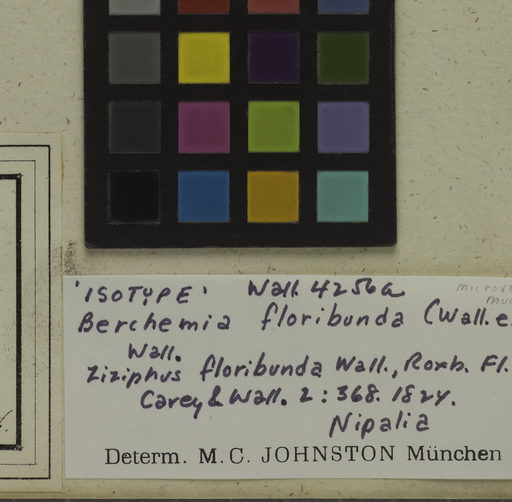 'ISOTYPE' Wall. 4256a
Berchemia floribunda (Wall. e
Wall.
Ziziphus floribunda Wall., Roxb. Fl.
Carey & Wall. 2:368. 1824.
Nipalia
Determ. M. C. JOHNSTON München